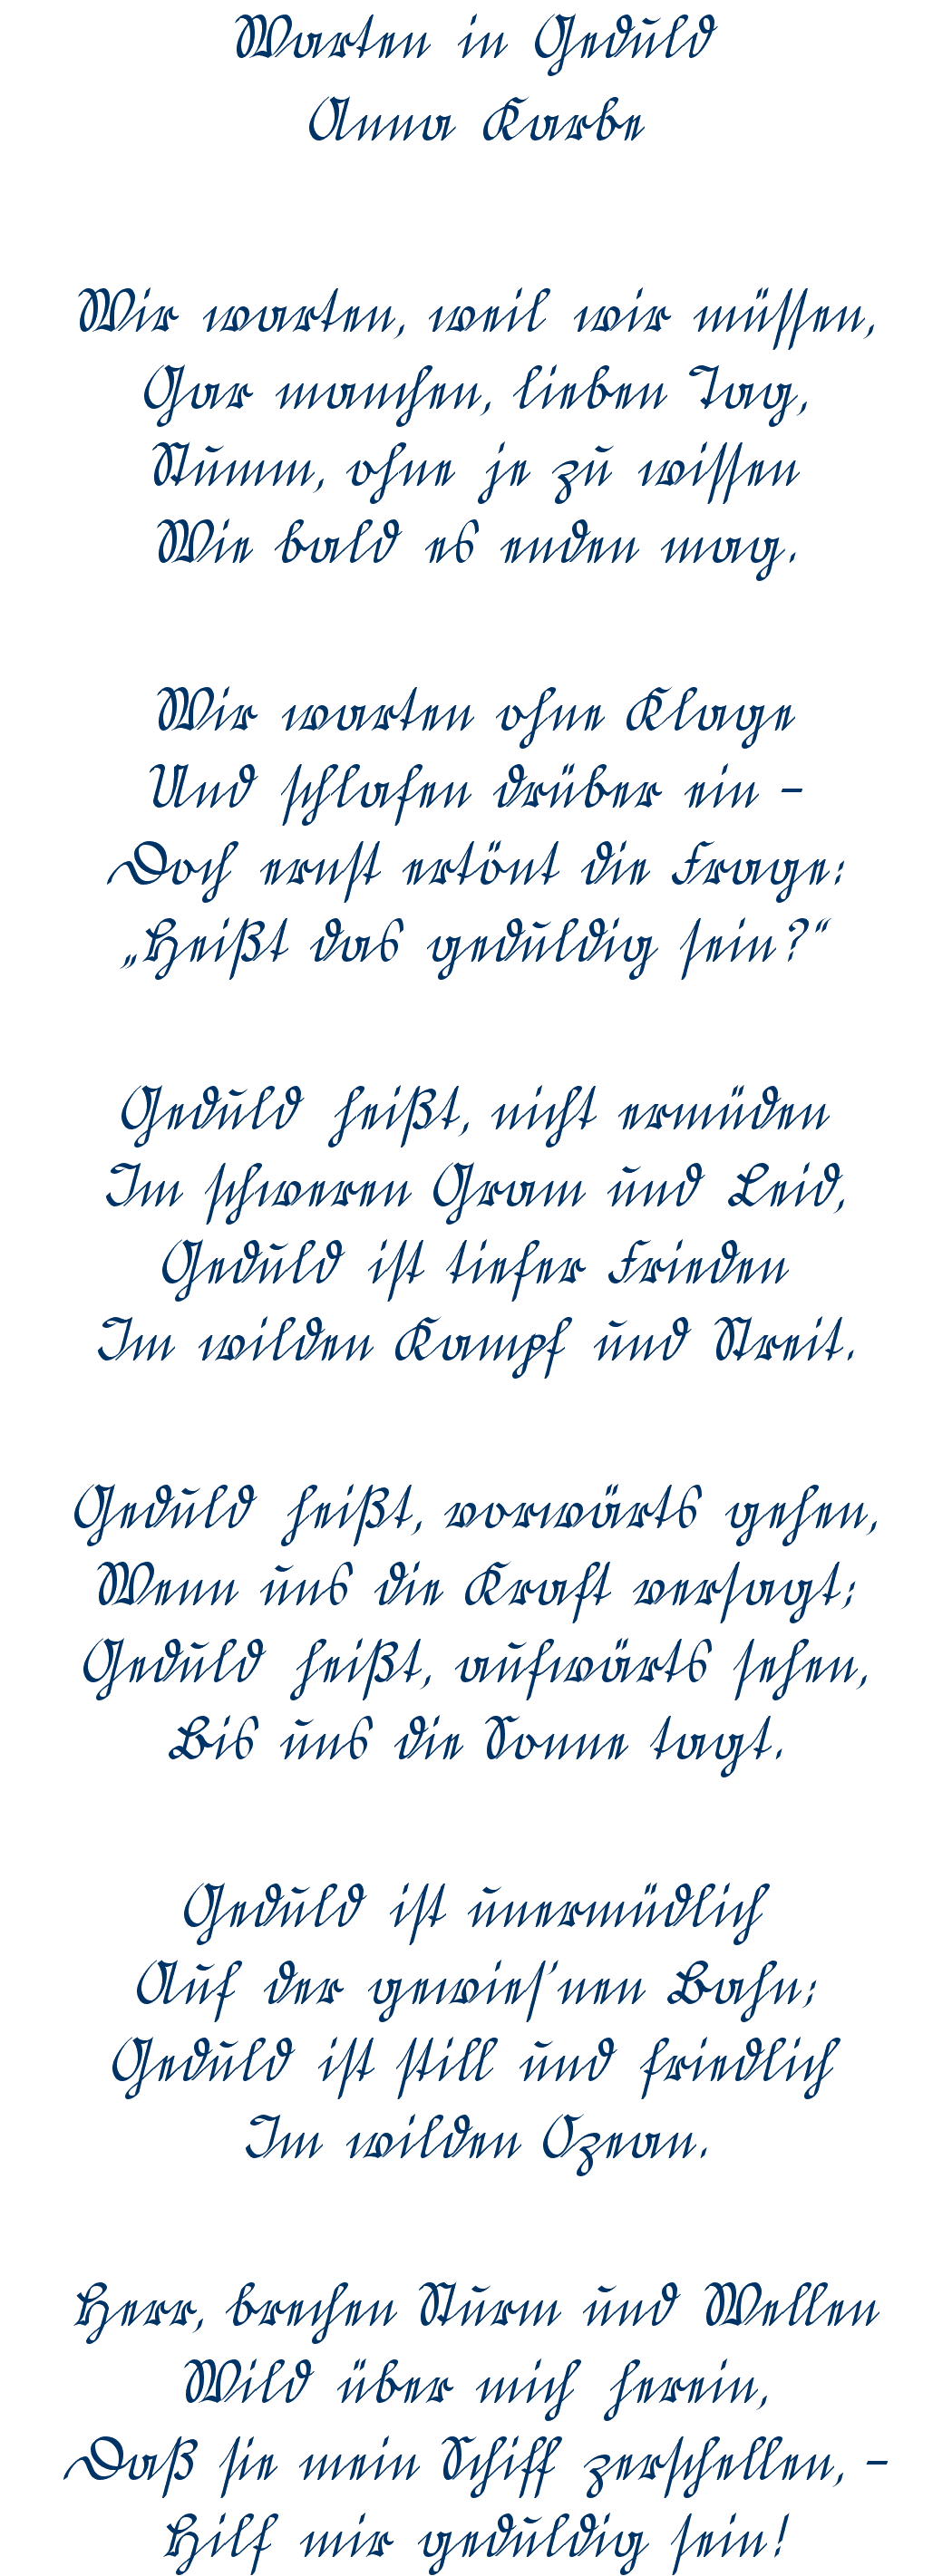 Warten in Geduld
Anna Karbe
Wir warten, weil wir müssen,
Gar manchen, lieben Tag,
Stumm, ohne je zu wissen
Wie bald es enden mag.
Wir warten ohne Klage
Und schlafen drüber ein –
Doch ernst ertönt die Frage:
„Heißt das geduldig sein?“
Geduld heißt, nicht ermüden
Im schweren Gram und Leid,
Geduld ist tiefer Frieden
Im wilden Kampf und Streit.
Geduld heißt, vorwärts gehen,
Wenn uns die Kraft versagt;
Geduld heißt, aufwärts sehen,
Bis uns die Sonne tagt.
Geduld ist unermüdlich
Auf der gewies'nen Bahn;
Geduld ist still und friedlich
Im wilden Ozean.
Herr, brechen Sturm und Wellen
Wild über mich herein,
Daß sie mein Schiff zerschellen, –
Hilf mir geduldig sein!